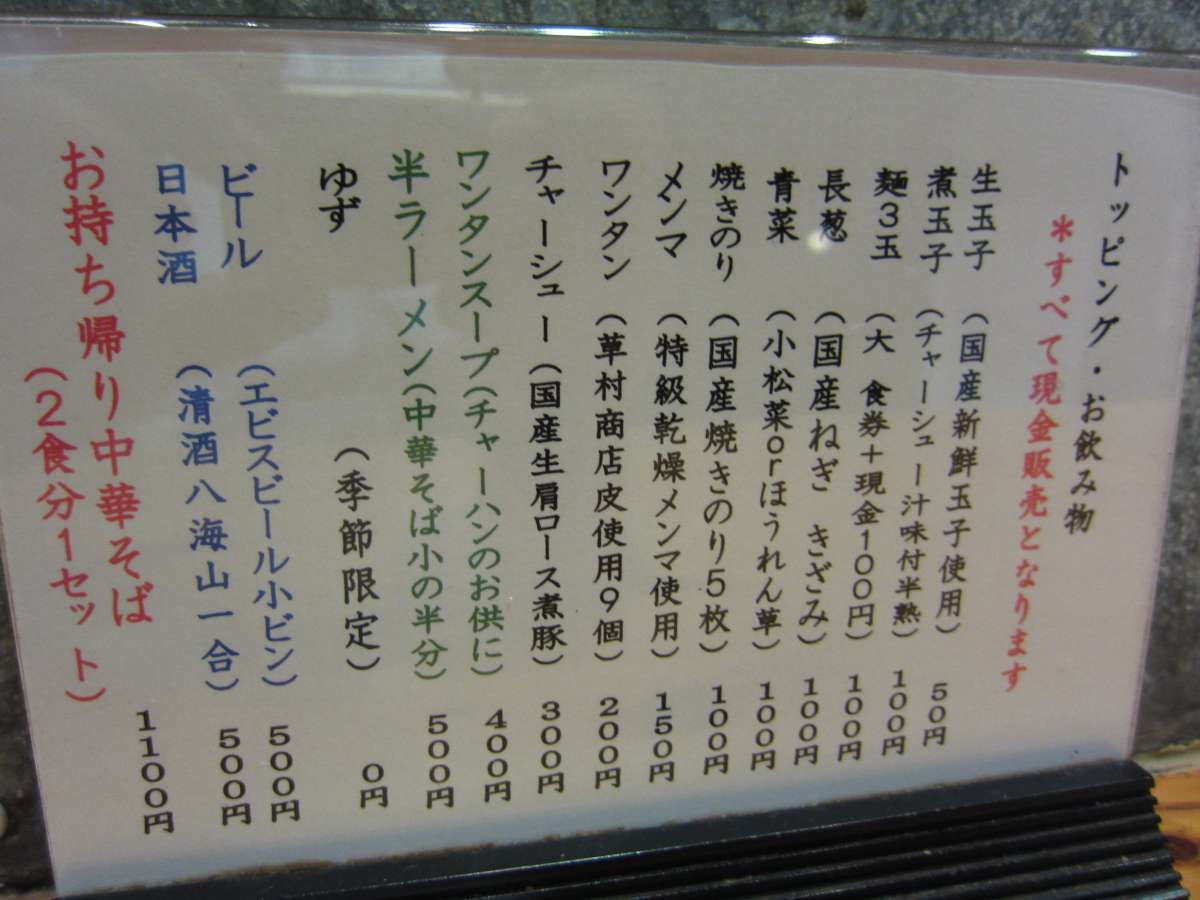 トッピング・お飲み物
＊すべて現金販売となります
生玉子 （国産新鮮玉子使用） 50円
煮玉子 （チャーシュー汁味付半熟） 100円
麺３玉 （大 食券＋現金100円） 100円
長葱 （国産ねぎ きざみ） 100円
青菜 （小松菜orほうれん草） 100円
焼きのり （国産焼きのり５枚） 100円
メンマ （特級乾燥メンマ使用） 150円
ワンタン （草村商店皮使用９個） 200円
チャーシュー （国産生肩ロース煮豚） 300円
ワンタンスープ（チャーハンのお供に） 400円
半ラーメン（中華そば小の半分） 500円
ゆず （季節限定） 0円
ビール （エビスビール小ビン） 500円
日本酒 （清酒八海山一合） 500円
お持ち帰り中華そば
（２食分１セット） 1100円